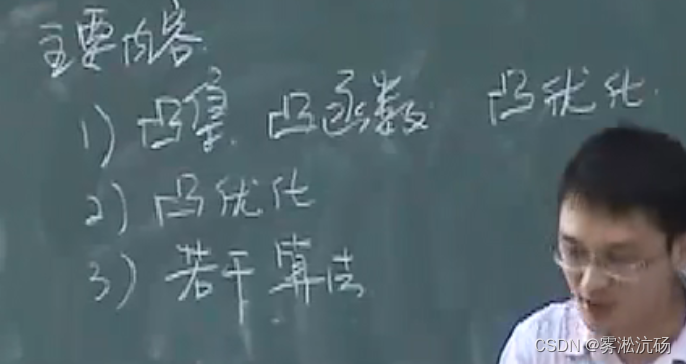 主要内容
1) 凸集 凸函数 凸优化
2) 凸优化
3) 若干算法
CSDN @雾淞沆砀